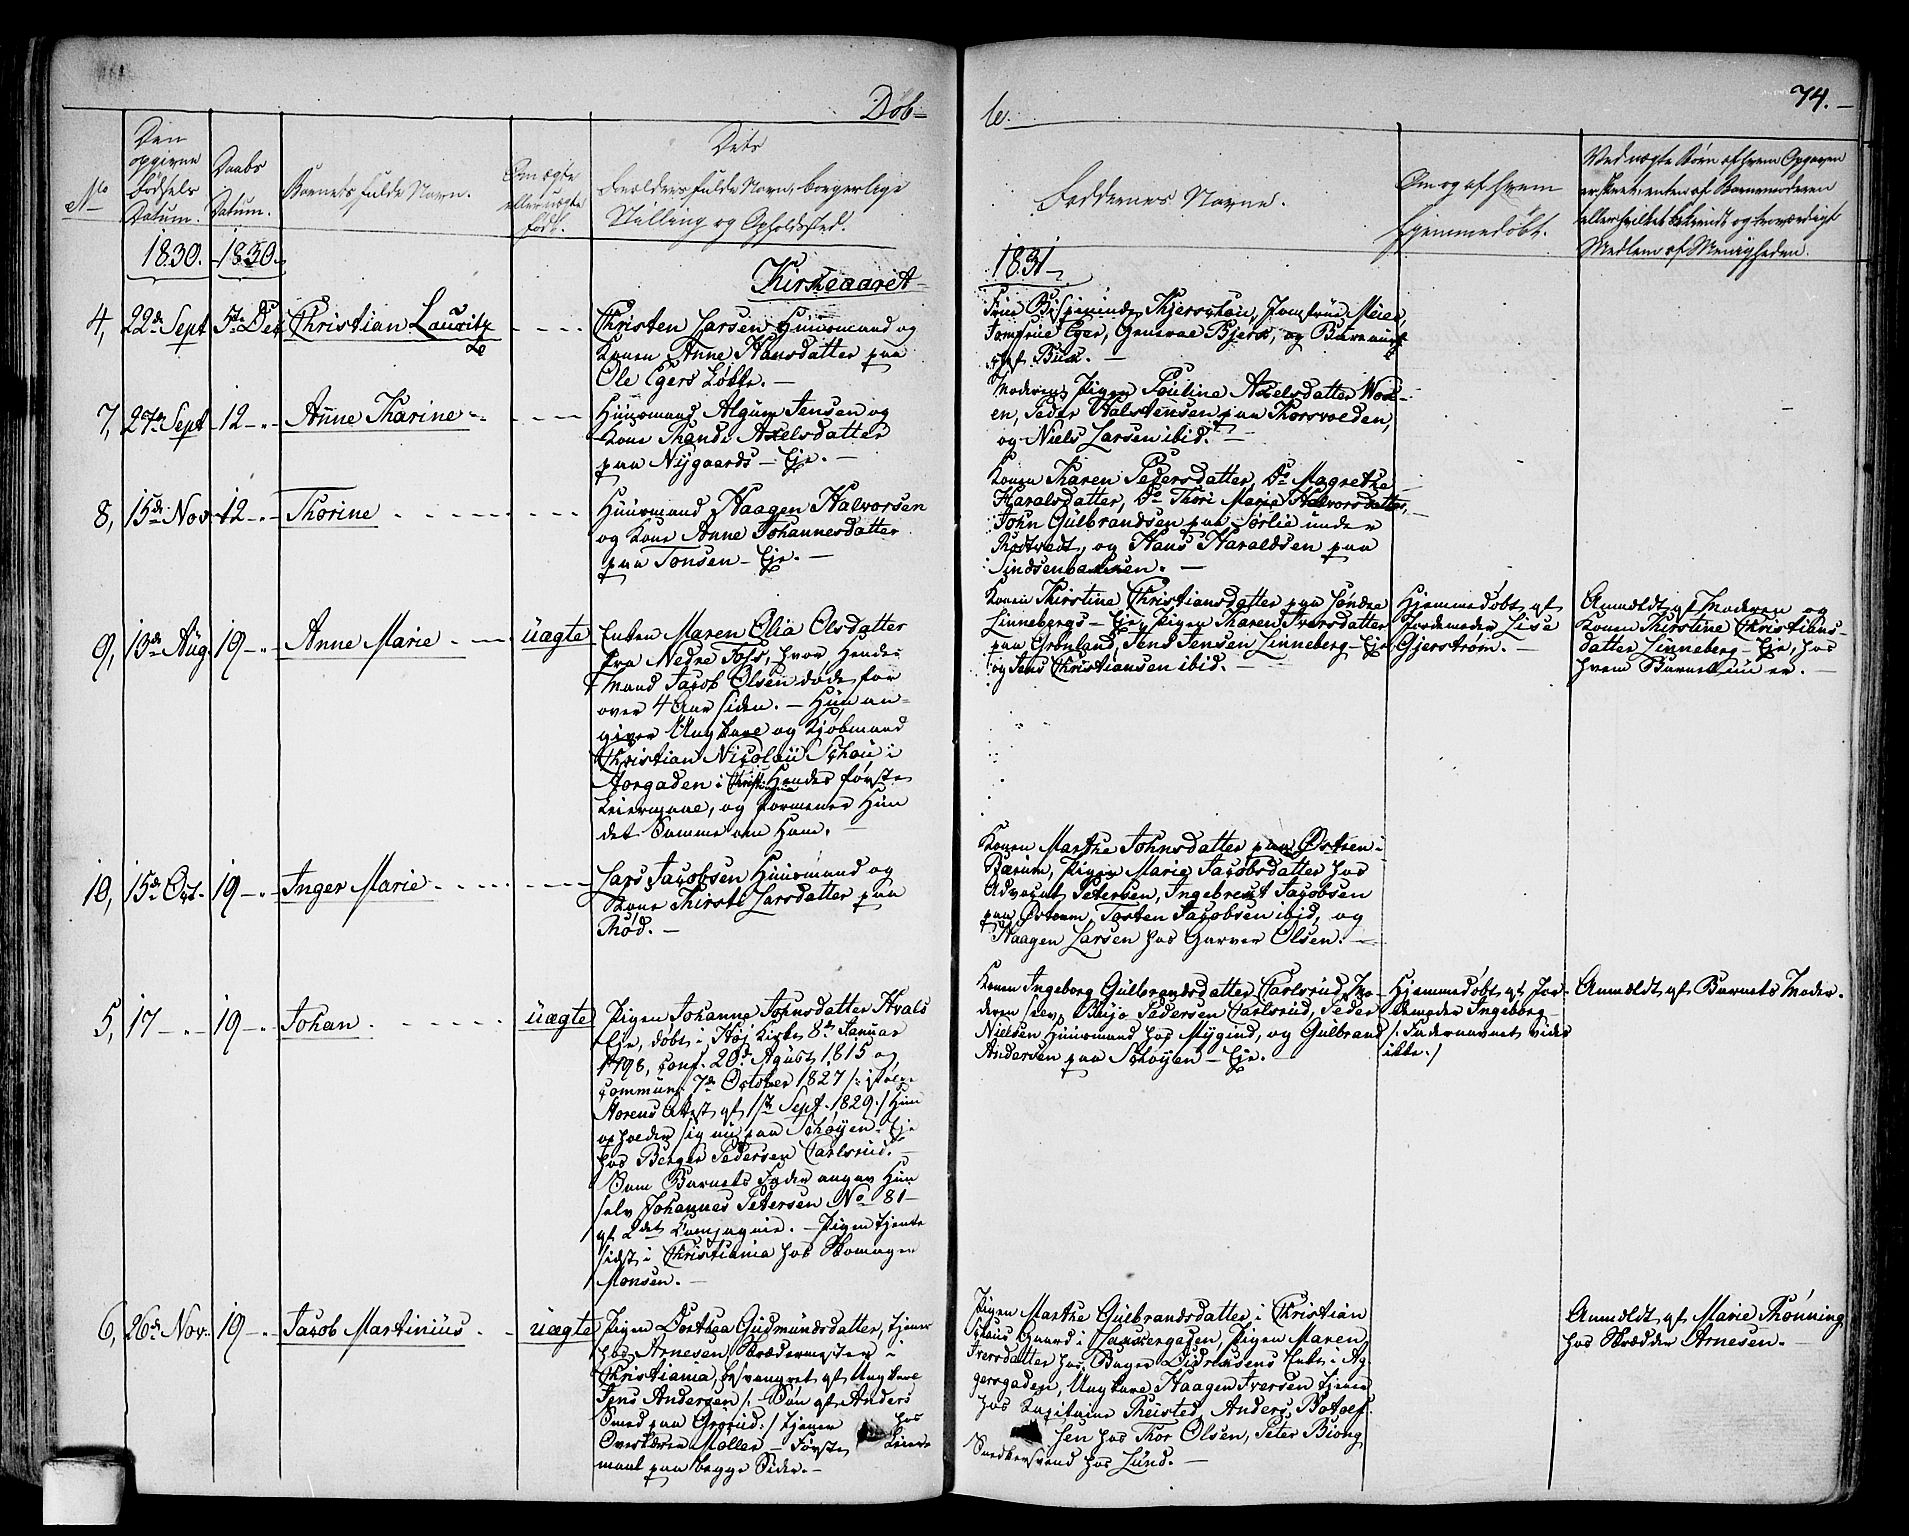 Döb-
te.
74.
No
Den
opgivne
Födsels
Datum.
Daabs
Datum.
Barnets fulde Navn.
Om ægte
eller uægte
født.
Dets
Forældres fulde Navn, borgerlige
Stilling og Opholdssted.
Faddernes Navne.
Om og af hvem
hjemmedöbt.
Ved uægte Børn af hvem Opgaven
er skeet, enten af Barnemoderen
eller hvilket bekiendt og troværdigt
Medlem af Menigheden.
1830.
1830.
Kirkeaaret
1831
4, 22de Sept
5te Dec
Christian Lauritz
Christen Larsen Huusmand og
Konen Anne Hansdatter paa
Ole Egers Løkke.
Jomfrue Eger, General Bjerk, og
7, 27de Sept
12
Anne Karine
Huusmand Jensen og
Kone Axelsdatter
paa Nygaards-Eje.
Moderen, Pigen Pauline Axelsdatter
Peder Halstensen paa Thorsvolden,
og Niels Larsen ibid.
8, 15de Nov
12
Thorine
Huusmand Haagen Halvorsen
og Kone Anne Johannesdatter
paa Tonsen-Eje.
Konen Karen Pedersdatter, Do Magrethe
Haralsdatter, Do Thori Marie Halvorsdatter,
John Gulbrandsen paa Sørlie under
og Hans Haraldsen paa
Sindsenbakken.
9, 13de Aug
19
Anne Marie
uægte
Enken Maren Olia Olsdatter
fra Nedre Foss, hvor Hendes
Mand Jacob Olsen døde for
over 4 Aar siden. Hun an-
giver Ungkarl og Kjøbmand
Christian Nicolai Schou i
Storgaden i Christiania. Hendes første
Leiermaal, og formener Hun
det Samme om Ham.
Konen Kirstine Christiansdatter paa Søndre
Linnebergs-Eje, Pigen Karen Iversdatter
paa Grønland, Jens Jensen Linneberg-Eje
og Jens Christiansen ibid.
Hjemmedöbt af
Jordemoder Lise
Gjerstrøm.
Anmeldt af Moderen og
Konen Kirstine Christians-
datter Linneberg-Eje, hos
hvem Barnet nu er.
10, 15de Oct.
19
Inger Marie
Lars Jacobsen Huusmand og
Kone Kirsti Larsdatter paa
Rød.
Konen Marthe Johnsdatter paa Østern i
Bærum, Pigen Marie Jacobsdatter hos
Advocat Petersen, Ingebret Jacobsen
paa Østern, Tosten Jacobsen ibid, og
Haagen Larsen hos Garver Olsen.
5, 17
19
Johan
uægte
Pigen Johanne Johnsdatter Hvals
Eje, døbt i Høj Kirke 8de Januar
1798, conf. 20de Agust 1815 og
commun: 7de October 1827 /: ifølge
Attest af 1ste Sept. 1829:/ Hun
opholder sig nu paa Schøyen-Eje
hos Berger Pedersen Carlsrud.
Som Barnets Fader angav Hun
selv Johannes Petersen No 81
af 2det Compagnie. Pigen tjente
sidst i Christiania hos Skomager
Monsen.
Konen Ingeborg Gulbrandsdatter Carlsrud, Mo-
deren selv, Birjo Pedersen Carlsrud, Peder
Nielsen Huusmand hos Mygind, og Gulbrand
Andersen paa Schøyen-Eje.
Hjemmedöbt af Jor-
demoder Ingeborg
/: Fadernavnet vides
ikke:/
Anmeldt af Barnets Moder.
6, 26de Nov.
19
Jacob Martinius
uægte
Pigen Dorthea Gudmundsdatter, tjener
hos Arnesen Skrædermester i
Christiania, besvangret af Ungkarl
Jens Andersen /: Søn af Anders
Smed paa Grorud:/ tjener hos
Møller. Første Leier-
maal paa begge Sider.
Pigen Marthe Gulbrandsdatter i Christian
Gaard i Pigen Maren
Iversdatter hos Bager Didriksens Enke i Ag-
gersgaden, Ungkarl Haagen Iversen tjener
hos Kapitaine Theisted, Anders Botolf-
sen hos Thor Olsen, Peter Biong
Snedkersvend hos Lund.
Anmeldt af Marie Thønning
hos Skrædder Arnesen.